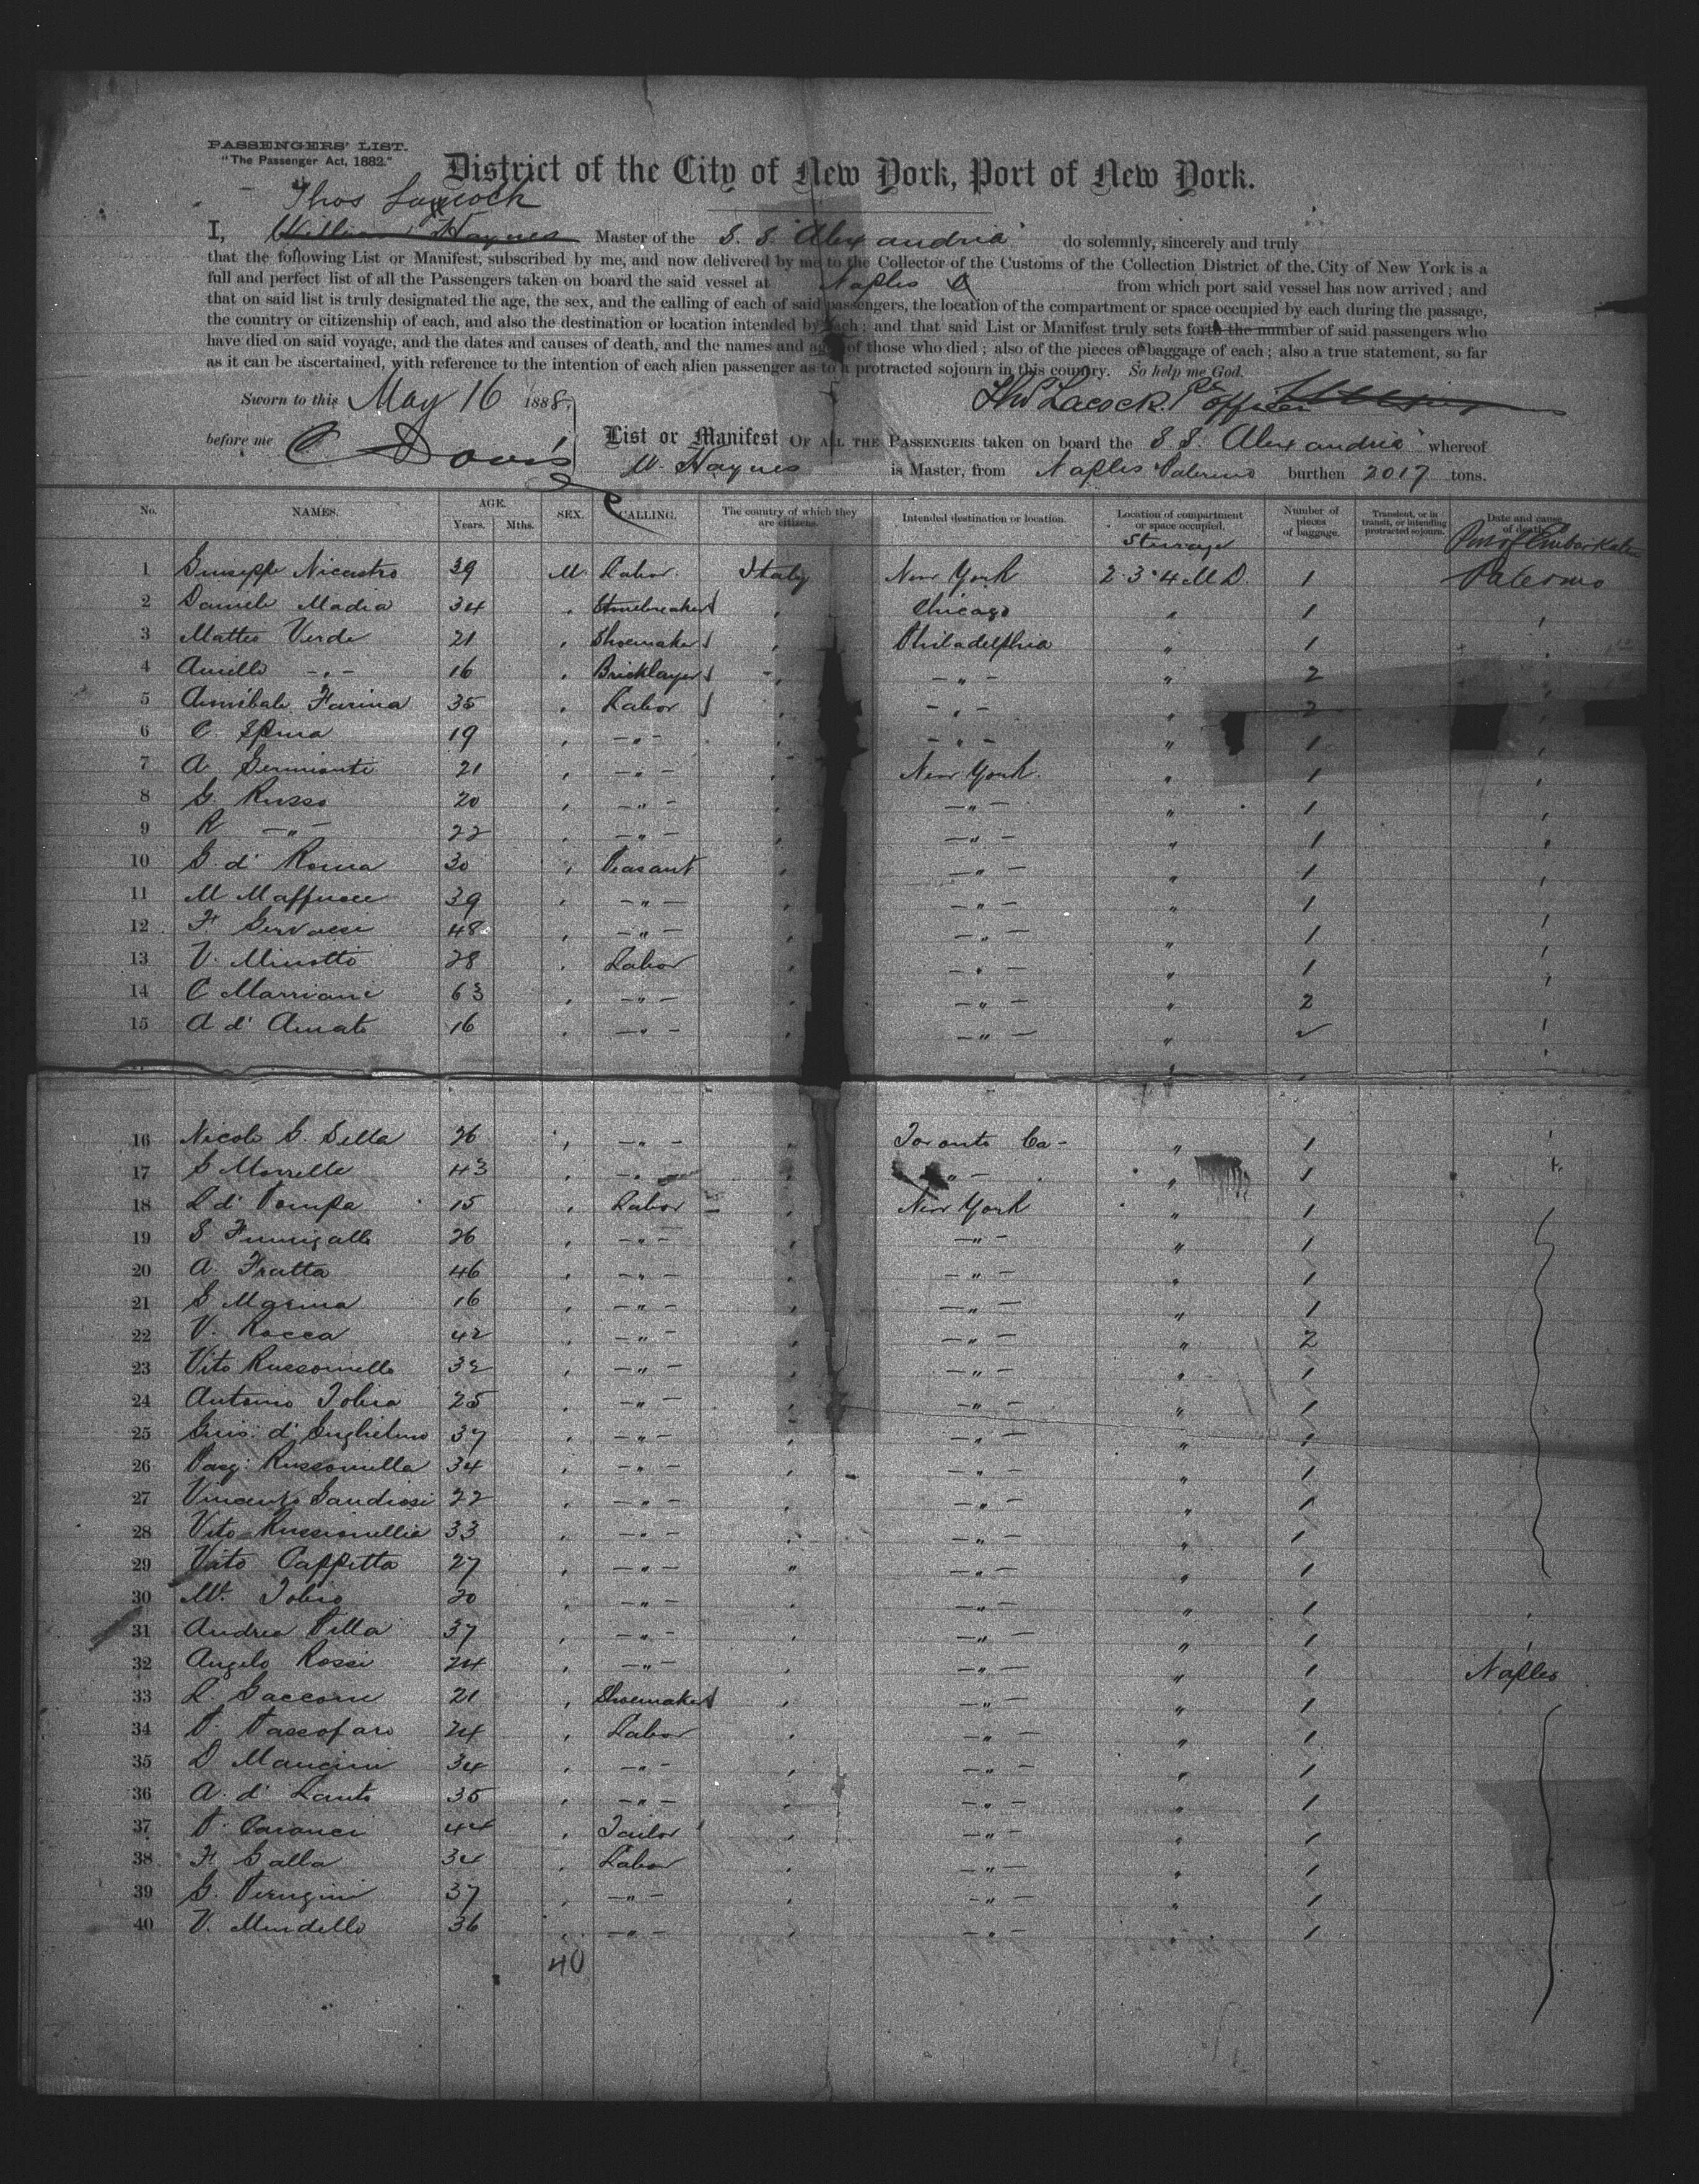 PASSENGERS' LIST.
"The Passenger Act, 1882."
District of the City of New York, Port of New York.
Thos Laycock
I, William Haynes Master of the S. S. "Alexandria" do solemnly, sincerely and truly
that the following List or Manifest, subscribed by me, and now delivered by me to the Collector of the Customs of the Collection District of the City of New York is a
full and perfect list of all the Passengers taken on board the said vessel at Naples from which port said vessel has now arrived; and
that on said list is truly designated the age, the sex, and the calling of each of said passengers, the location of the compartment or space occupied by each during the passage,
the country or citizenship of each, and also the destination or location intended by each; and that said List or Manifest truly sets forth the number of said passengers who
have died on said voyage, and the dates and causes of death, and the names and ages of those who died; also of the pieces of baggage of each; also a true statement, so far
as it can be ascertained, with reference to the intention of each alien passenger as to a protracted sojourn in this country. So help me God.
Sworn to this May 16 1888, Thos Lacock. 1st officer
before me C Davis List or Manifest OF ALL THE PASSENGERS taken on board the S. S. "Alexandria" whereof
W. Haynes is Master, from Naples & Palermo burthen 2017 tons.
No. NAMES. AGE. Years. Mths. SEX. CALLING. The country of which they are citizens. Intended destination or location. Location of compartment or space occupied. Number of pieces of baggage. Transient, or in transit, or intending protracted sojourn. Date and cause of death.
Steerage Port of Embarkation
1 Giuseppe Nicastro 39 M. Labor. Italy New York 2.3.4 M D. 1 Palermo
2 Daniele Madia 34 " Stonebreaker " Chicago " 1 "
3 Matteo Verde 21 " Shoemaker " Philadelphia " 1 "
4 Aniello - " - 16 " Bricklayer " - " - " 2 "
5 Annibale Farina 35 " Labor " - " - " 2 "
6 C. Spina 19 " - " - " - " - " 1 "
7 A. 21 " - " - " New York. " 1 "
8 G Russo 20 " - " - " - " - " 1 "
9 R - " - 22 " - " - " - " - " 1 "
10 G. d' Roma 30 " Peasant " - " - " 1 "
11 M Maffucci 39 " - " - " - " - " 1 "
12 F Gervasi 48 " - " - " - " - " 1 "
13 V. Minotto 28 " Labor " - " - " 1 "
14 C Marriani 63 " - " - " - " - " 2 "
15 A d' Amato 16 " - " - " - " - " "
16 Nicola G. Sella 26 " - " - " Toronto Ca - " 1 "
17 G Morrelle 43 " - " - " - " - " 1 "
18 L d' Pompa 15 " Labor " New York " 1
19 S Fumigalli 26 " - " - " - " - " 1
20 A. Fratta 46 " - " - " - " - " 1
21 G Marina 16 " - " - " - " - " 1
22 V. Rocca 42 " - " - " - " - " 2
23 Vito Russomello 32 " - " - " - " - " 1
24 Antonio Tobia 25 " - " - " - " - " 1
25 d' Guglielmo 37 " - " - " - " - " 1
26 Pasq: Russomella 34 " - " - " - " - " 1
27 Vincenzo Gaudiosi 22 " - " - " - " - " 1
28 Vito Russiomellia 33 " - " - " - " - " 1
29 Vito Cappetta 27 " - " - " - " - " 1
30 M. Tobio 20 " - " - " - " - " 1 "
31 Andrea Villa 37 " - " - " - " - " 1 "
32 Angelo Rossi 24 " - " - " - " - " 1 Naples
33 L. Gaccom 21 " Shoemaker " - " - " 1
34 P. Pascofaro 24 " Labor " - " - " 1
35 D Mancini 34 " - " - " - " - " 1
36 A. d' Santo 35 " - " - " - " - " 1
37 P. 44 " Tailor " - " - " 1
38 F. Galla 34 " Labor " - " - " 1
39 G. Perugini 37 " - " - " - " - " 1
40 V. Mindello 36 " - " - " - " - " 1
40